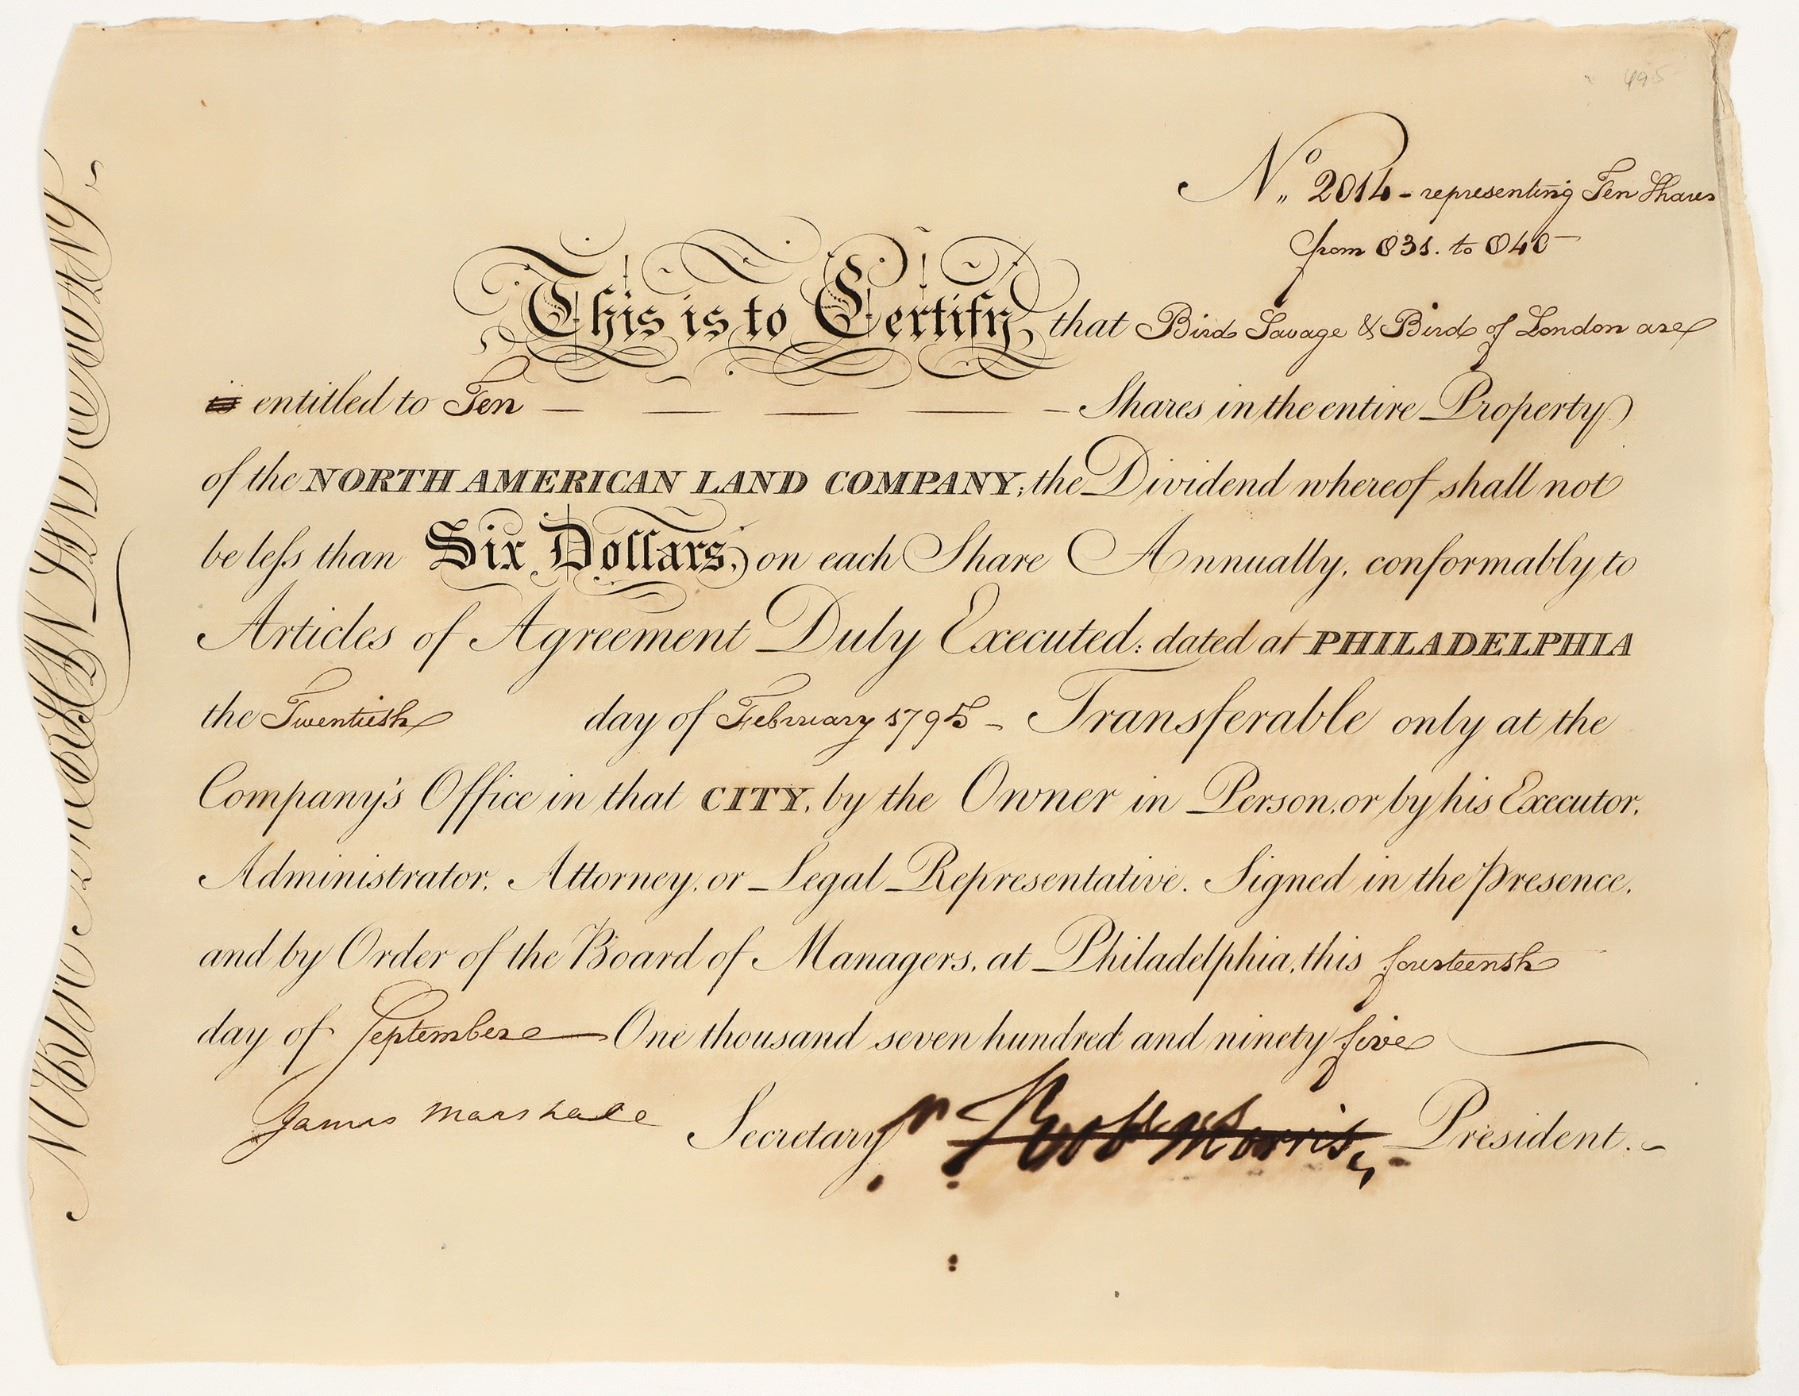 495
No. 2014 - representing Ten Shares
from 031. to 040
This is to Certify, that Bird Savage & Bird of London are
is entitled to Ten Shares in the entire Property
of the NORTH AMERICAN LAND COMPANY; the Dividend whereof shall not
be less than Six Dollars, on each Share Annually, conformably to
Articles of Agreement Duly Executed: dated at PHILADELPHIA
the Twentieth day of February 1795 - Transferable only at the
Company's Office in that CITY, by the Owner in Person, or by his Executor,
Administrator, Attorney, or Legal Representative. Signed in the Presence,
and by Order of the Board of Managers, at Philadelphia, this fourteenth
day of September One thousand seven hundred and ninety five
James Marshall Secretary Robt Morris, President.